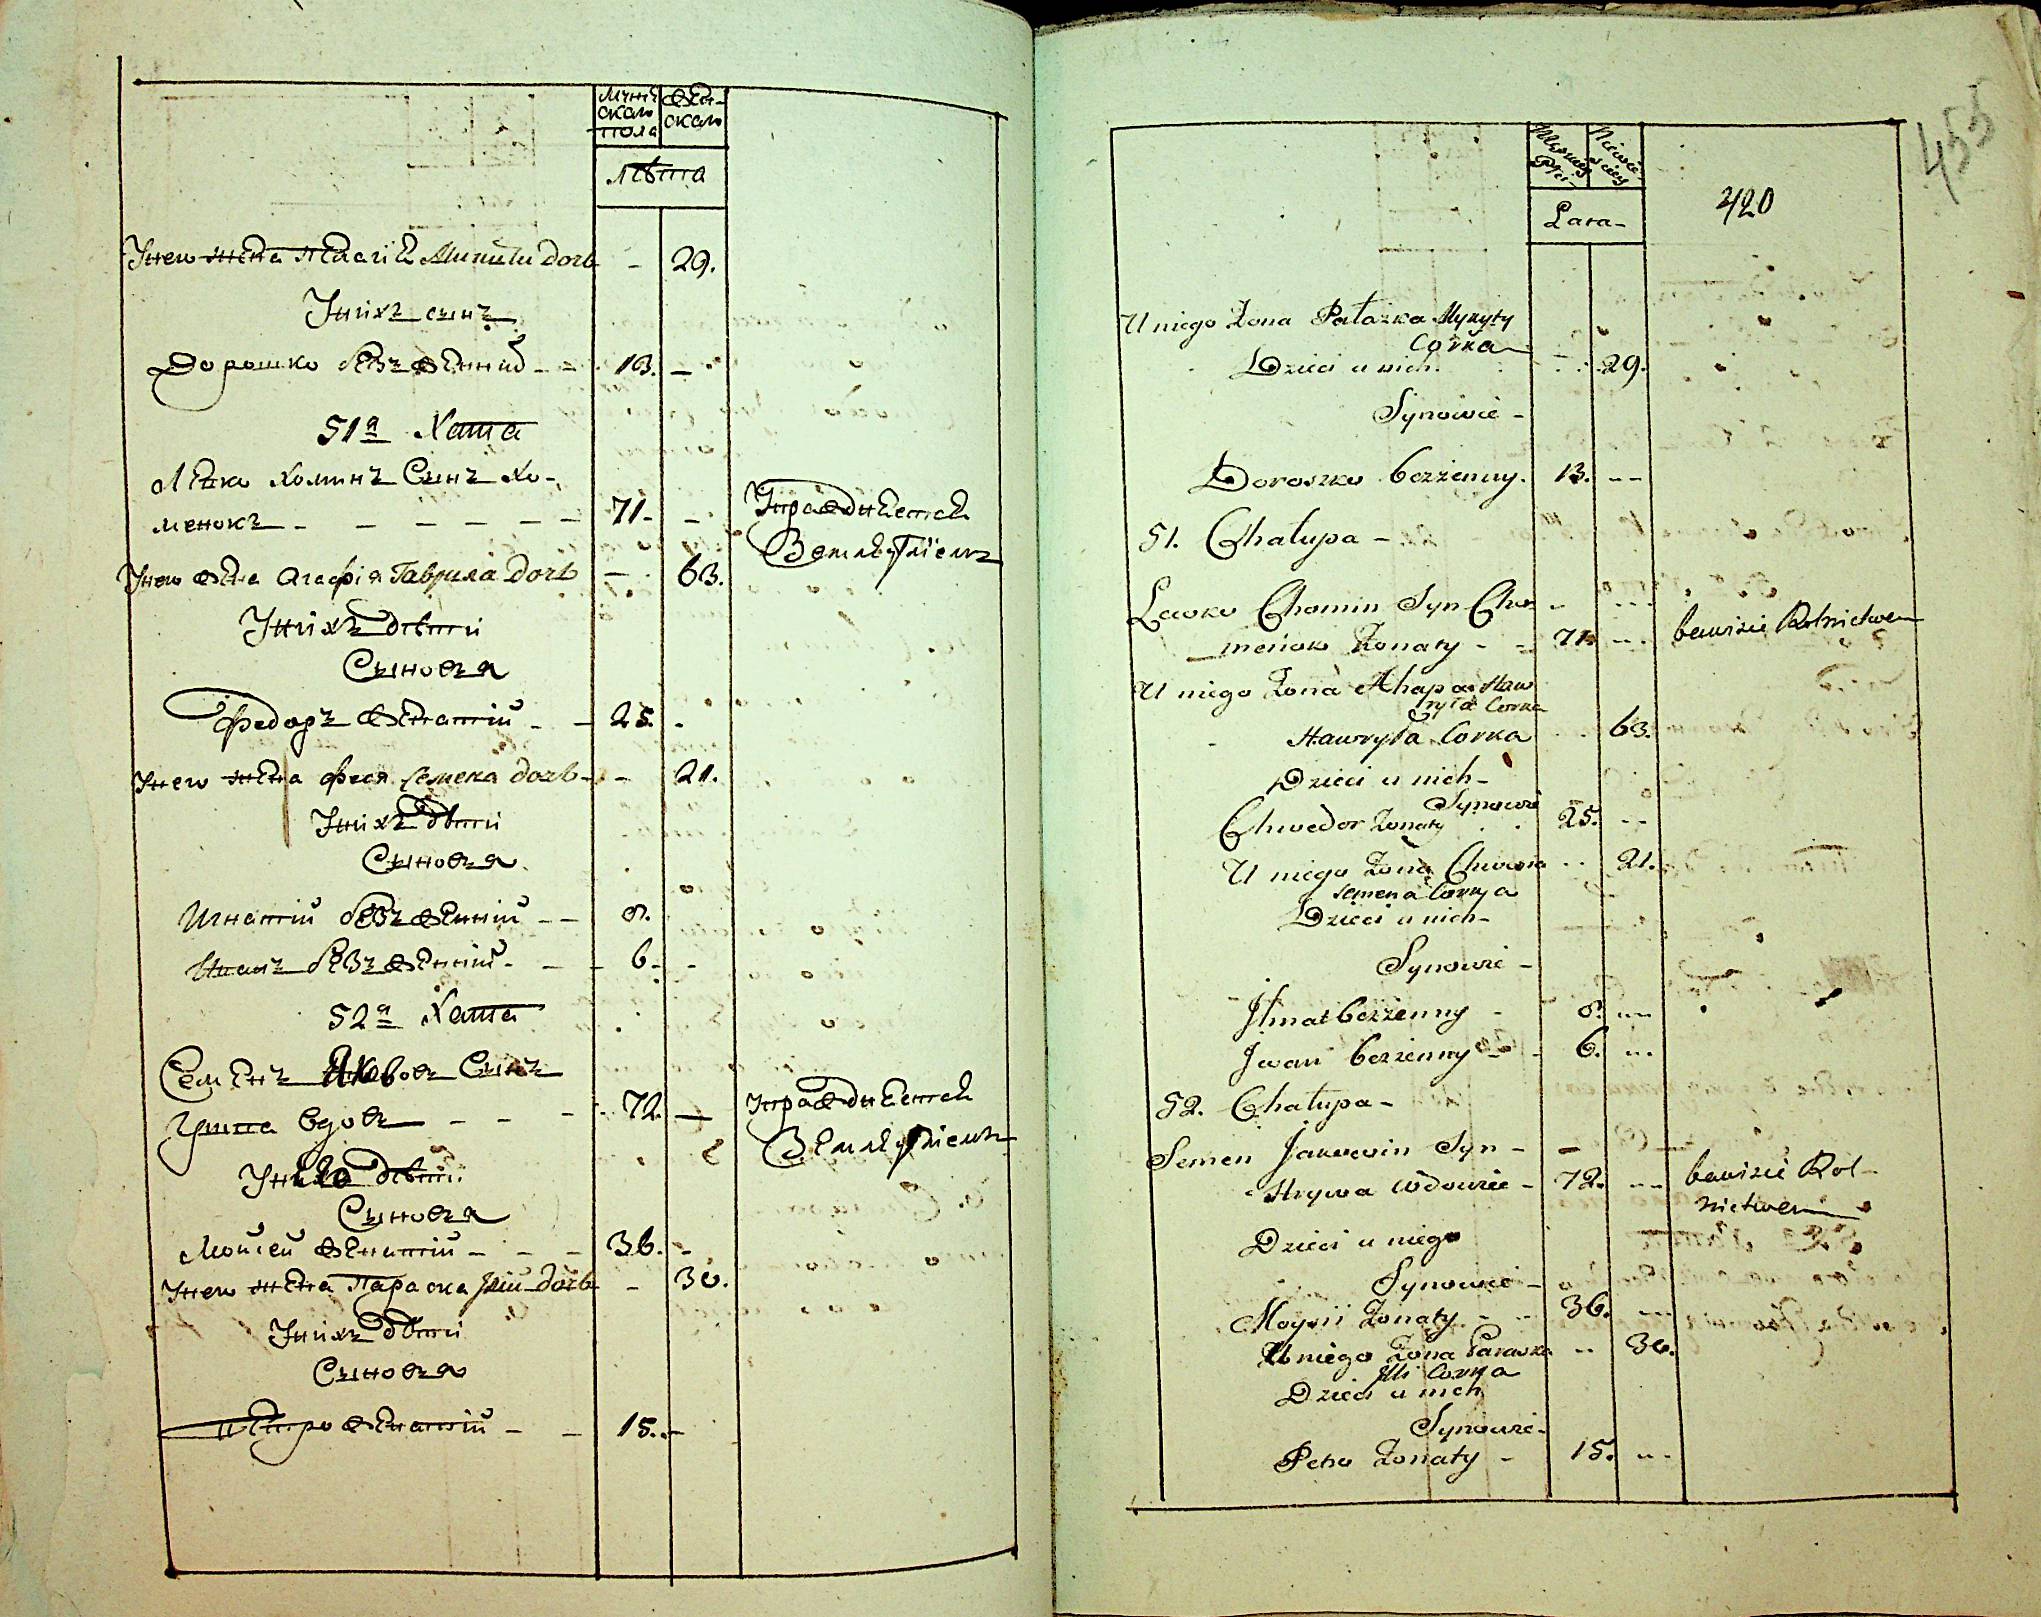 Мужс
ского
пола
Жен-
ского
Лѣта
Унего жена Пелагія Микити дочь - 29.
Унихъ сынъ
Дорошко безъженній - - 13. -
51я Хата
Левко Хоминъ Сынъ Хо-
менокъ - - - - - - 71. -
Упражднѣется
Земледѣліемъ
Унего жена Агафія Гаврила дочь - 63.
Унихъ дѣти
Сыновья
Федоръ женатій - - 25. -
Унего жена Феся Семена дочь - - 21.
Унихъ дѣти
Сыновья
Игнатій безъженній - - 8.
Иванъ безъженній - - 6. -
52я Хата
Семенъ Якововъ Сынъ
Грива вдовъ - - - 72. -
Упражднѣется
Земледѣліемъ
Унего дѣти
Сыновья
Мойсей женатій - - - 36. -
Унего жена Параска Іллі дочь - 30.
Унихъ дѣти
Сыновья
Петро женатій - - 15. -
455
Męzkiey
Płci
Niewie-
sciey
Lata-
420
U niego Żona Pałazka Mykyty
Corka - - 29.
Dzieci u nich
Synowie -
Doroszko bezżenny. 13. --
51. Chałupa -
Lewko Chomin Syn Cho -
meńok Żonaty - - 71. --
bawisie Rolnictwem
U niego Żona Ahapa Haw
ryła Corka
Hawryła Corka 63.
Dzieci u nich -
Synowie
Chwedor Żonaty 25. --
U niego Żona Chwesia -- 21.
Semena Corka
Dzieci u nich -
Synowie -
Ihnat bezżenny - 8. --
Jwan bezżenny - 6. --
52. Chałupa -
Semen Jakowin Syn - -
Hrywa Wdowiec - 72. --
bawisie Rol-
nictwem
Dzieci u niego
Synowie -
Moysii Żonaty - - 36. --
U niego Żona Paraska -- 30.
Jlli Corka
Dzieci u nich
Synowie -
Petro Żonaty - 15. --